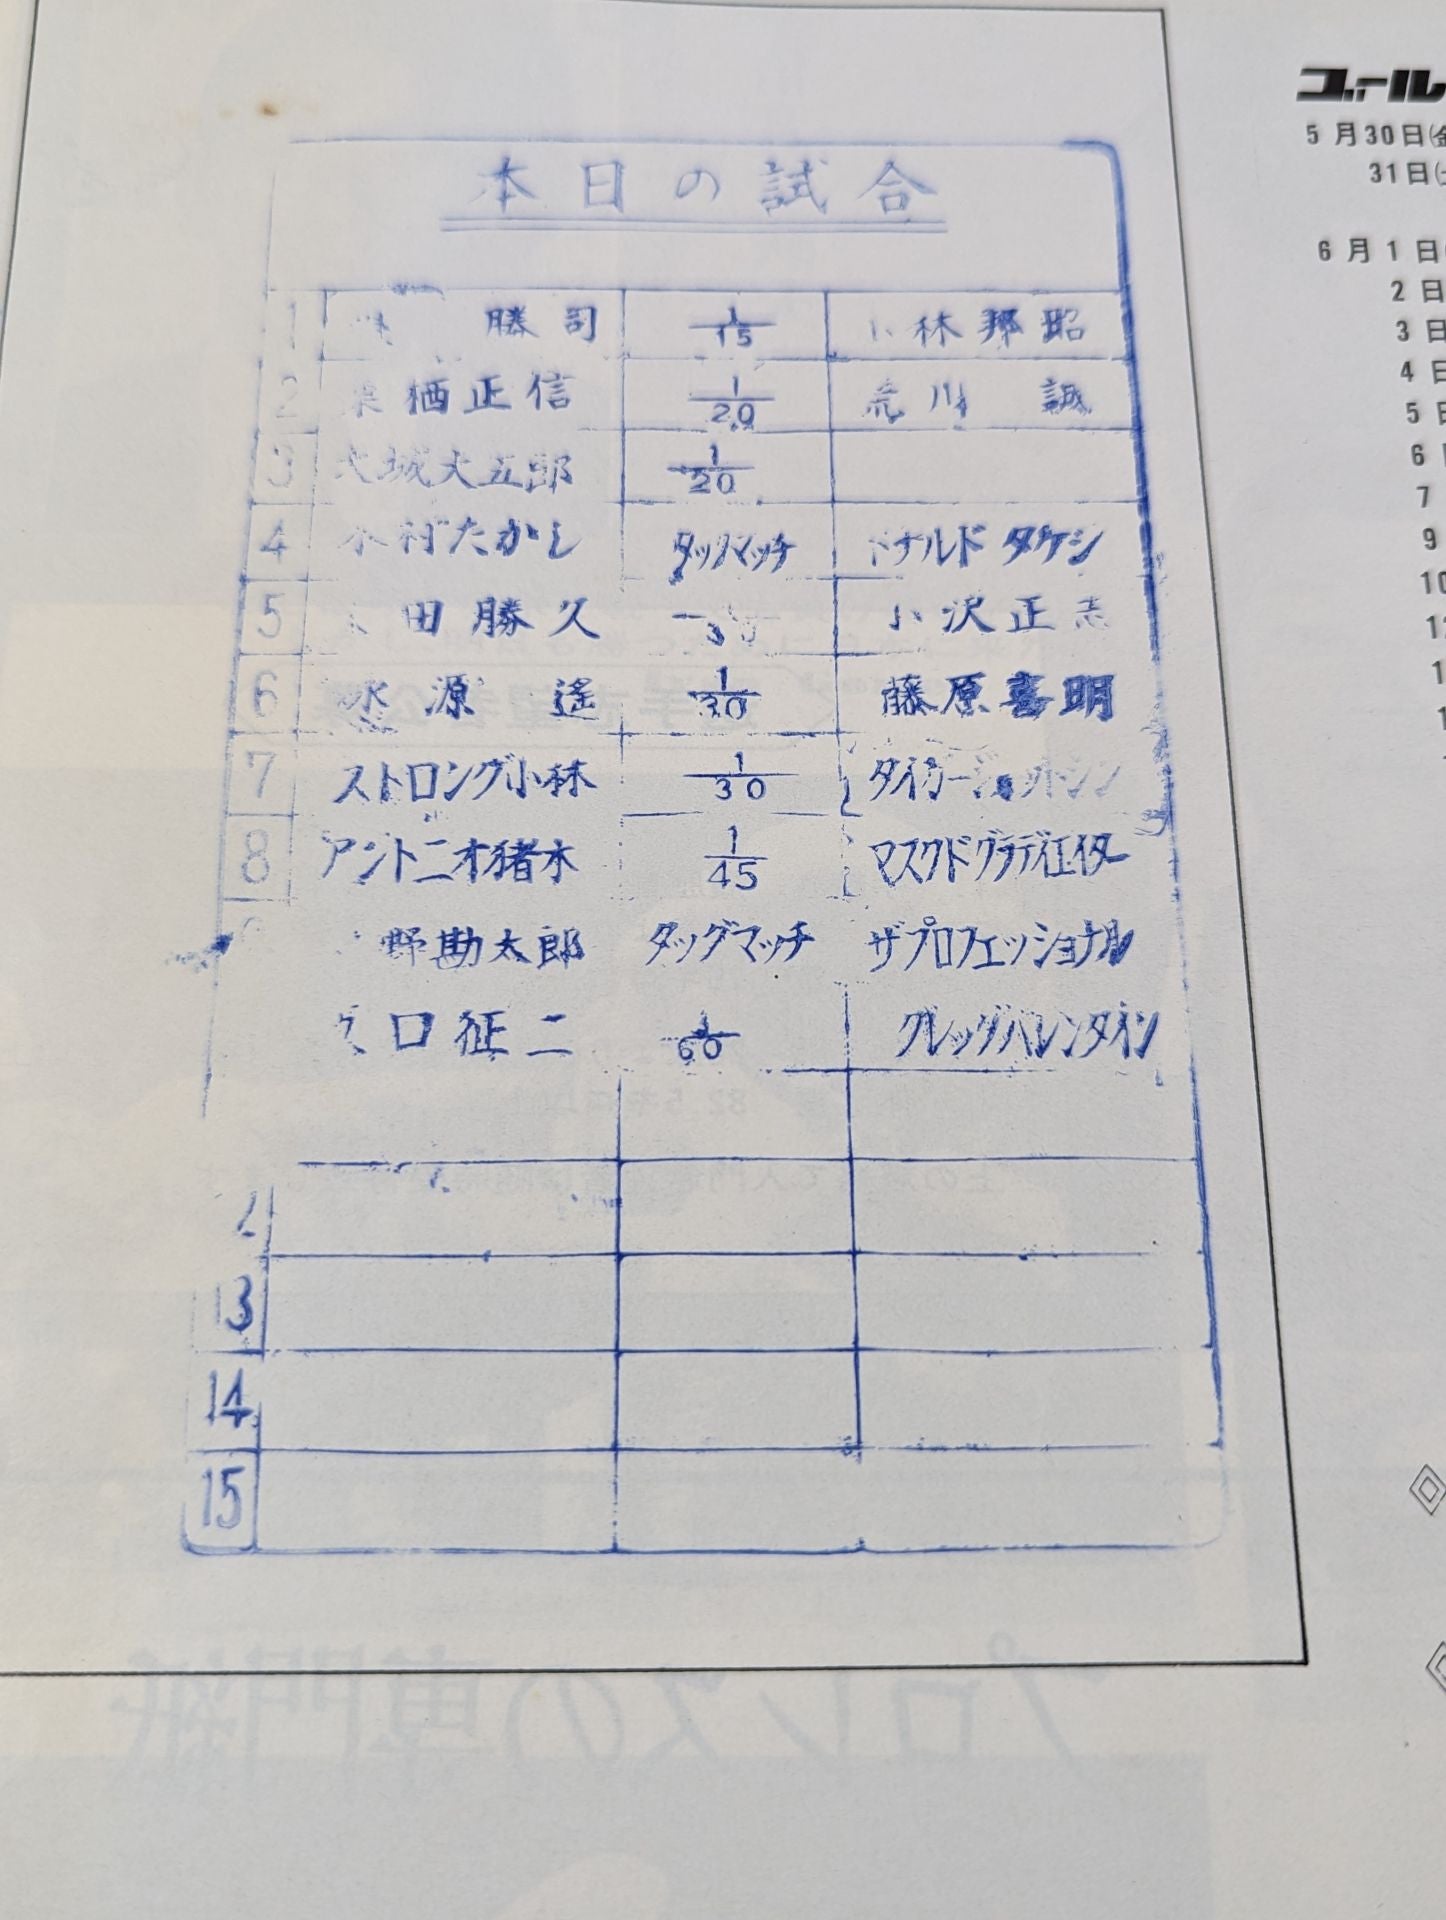 本日の試合
1 勝司 1/15 小林邦昭
2 栗栖正信 1/20 荒川 誠
3 大城大五郎 1/20
4 木村たかし タッグマッチ ドナルド タケシ
5 田勝久 小沢正志
6 永源 遙 1/30 藤原喜明
7 ストロング小林 1/30 タイガージェットシン
8 アントニオ猪木 1/45 マスクドグラディエイター
野勘太郎 タッグマッチ ザプロフェッショナル
口征二 1/60 グレッグバレンタイン
13
14
15
ゴール
5月30日(金
31日(土
6月1日
2日
3日
4日
5日
6日
7
9
10
プロレスの専門紙